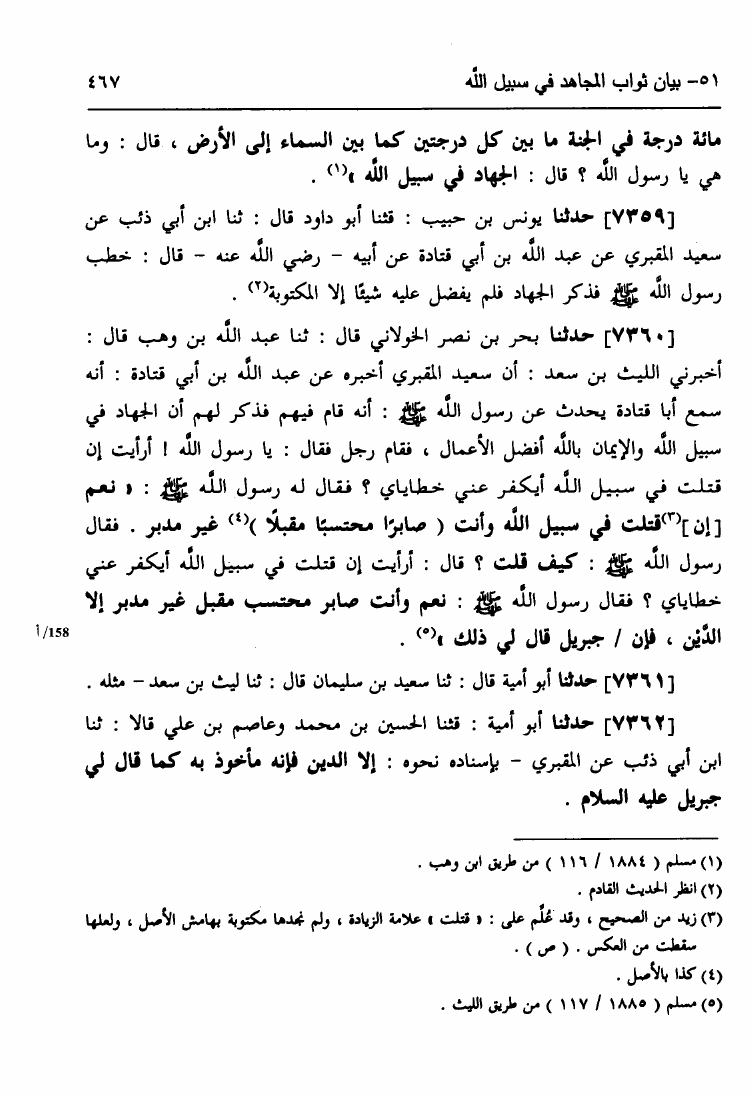 ٥١- بيان ثواب المجاهد في سبيل اللَّه ٤٦٧
مائة درجة في الجنة ما بين كل درجتين كما بين السماء إلى الأرض ، قال : وما
هي يا رسول اللَّه ؟ قال : الجهاد في سبيل اللَّه »(١) .
[٧٣٥٩] حدثنا يونس بن حبيب : قثنا أبو داود قال : ثنا ابن أبي ذئب عن
سعيد المقبري عن عبد اللَّه بن أبي قتادة عن أبيه - رضي اللَّه عنه - قال : خطب
رسول اللَّه ﷺ فذكر الجهاد فلم يفضل عليه شيئًا إلا المكتوبة(٢) .
[٧٣٦٠] حدثنا بحر بن نصر الخولاني قال : ثنا عبد اللَّه بن وهب قال :
أخبرني الليث بن سعد : أن سعيد المقبري أخبره عن عبد اللَّه بن أبي قتادة : أنه
سمع أبا قتادة يحدث عن رسول اللَّه ﷺ : أنه قام فيهم فذكر لهم أن الجهاد في
سبيل اللَّه والإيمان باللَّه أفضل الأعمال ، فقام رجل فقال : يا رسول اللَّه ! أرأيت إن
قتلت في سبيل اللَّه أيكفر عني خطاياي ؟ فقال له رسول اللَّه ﷺ : « نعم
[إن](٣)قتلت في سبيل اللَّه وأنت ( صابرًا محتسبًا مقبلًا )(٤) غير مدبر . فقال
رسول اللَّه ﷺ : كيف قلت ؟ قال : أرأيت إن قتلت في سبيل اللَّه أيكفر عني
خطاياي ؟ فقال رسول اللَّه ﷺ : نعم وأنت صابر محتسب مقبل غير مدبر إلا
الدَّيْن ، فإن / جبريل قال لي ذلك »(٥) .
158/أ
[٧٣٦١] حدثنا أبو أمية قال : ثنا سعيد بن سليمان قال : ثنا ليث بن سعد - مثله .
[٧٣٦٢] حدثنا أبو أمية : قثنا الحسين بن محمد وعاصم بن علي قالا : ثنا
ابن أبي ذئب عن المقبري - بإسناده نحوه : إلا الدين فإنه مأخوذ به كما قال لي
جبريل عليه السلام .
(١) مسلم ( ١٨٨٤ / ١١٦ ) من طريق ابن وهب .
(٢) انظر الحديث القادم .
(٣) زيد من الصحيح ، وقد عُلِّم على : « قتلت » علامة الزيادة ، ولم نجدها مكتوبة بهامش الأصل ، ولعلها
سقطت من العكس . ( ص ) .
(٤) كذا بالأصل .
(٥) مسلم ( ١٨٨٥ / ١١٧ ) من طريق الليث .